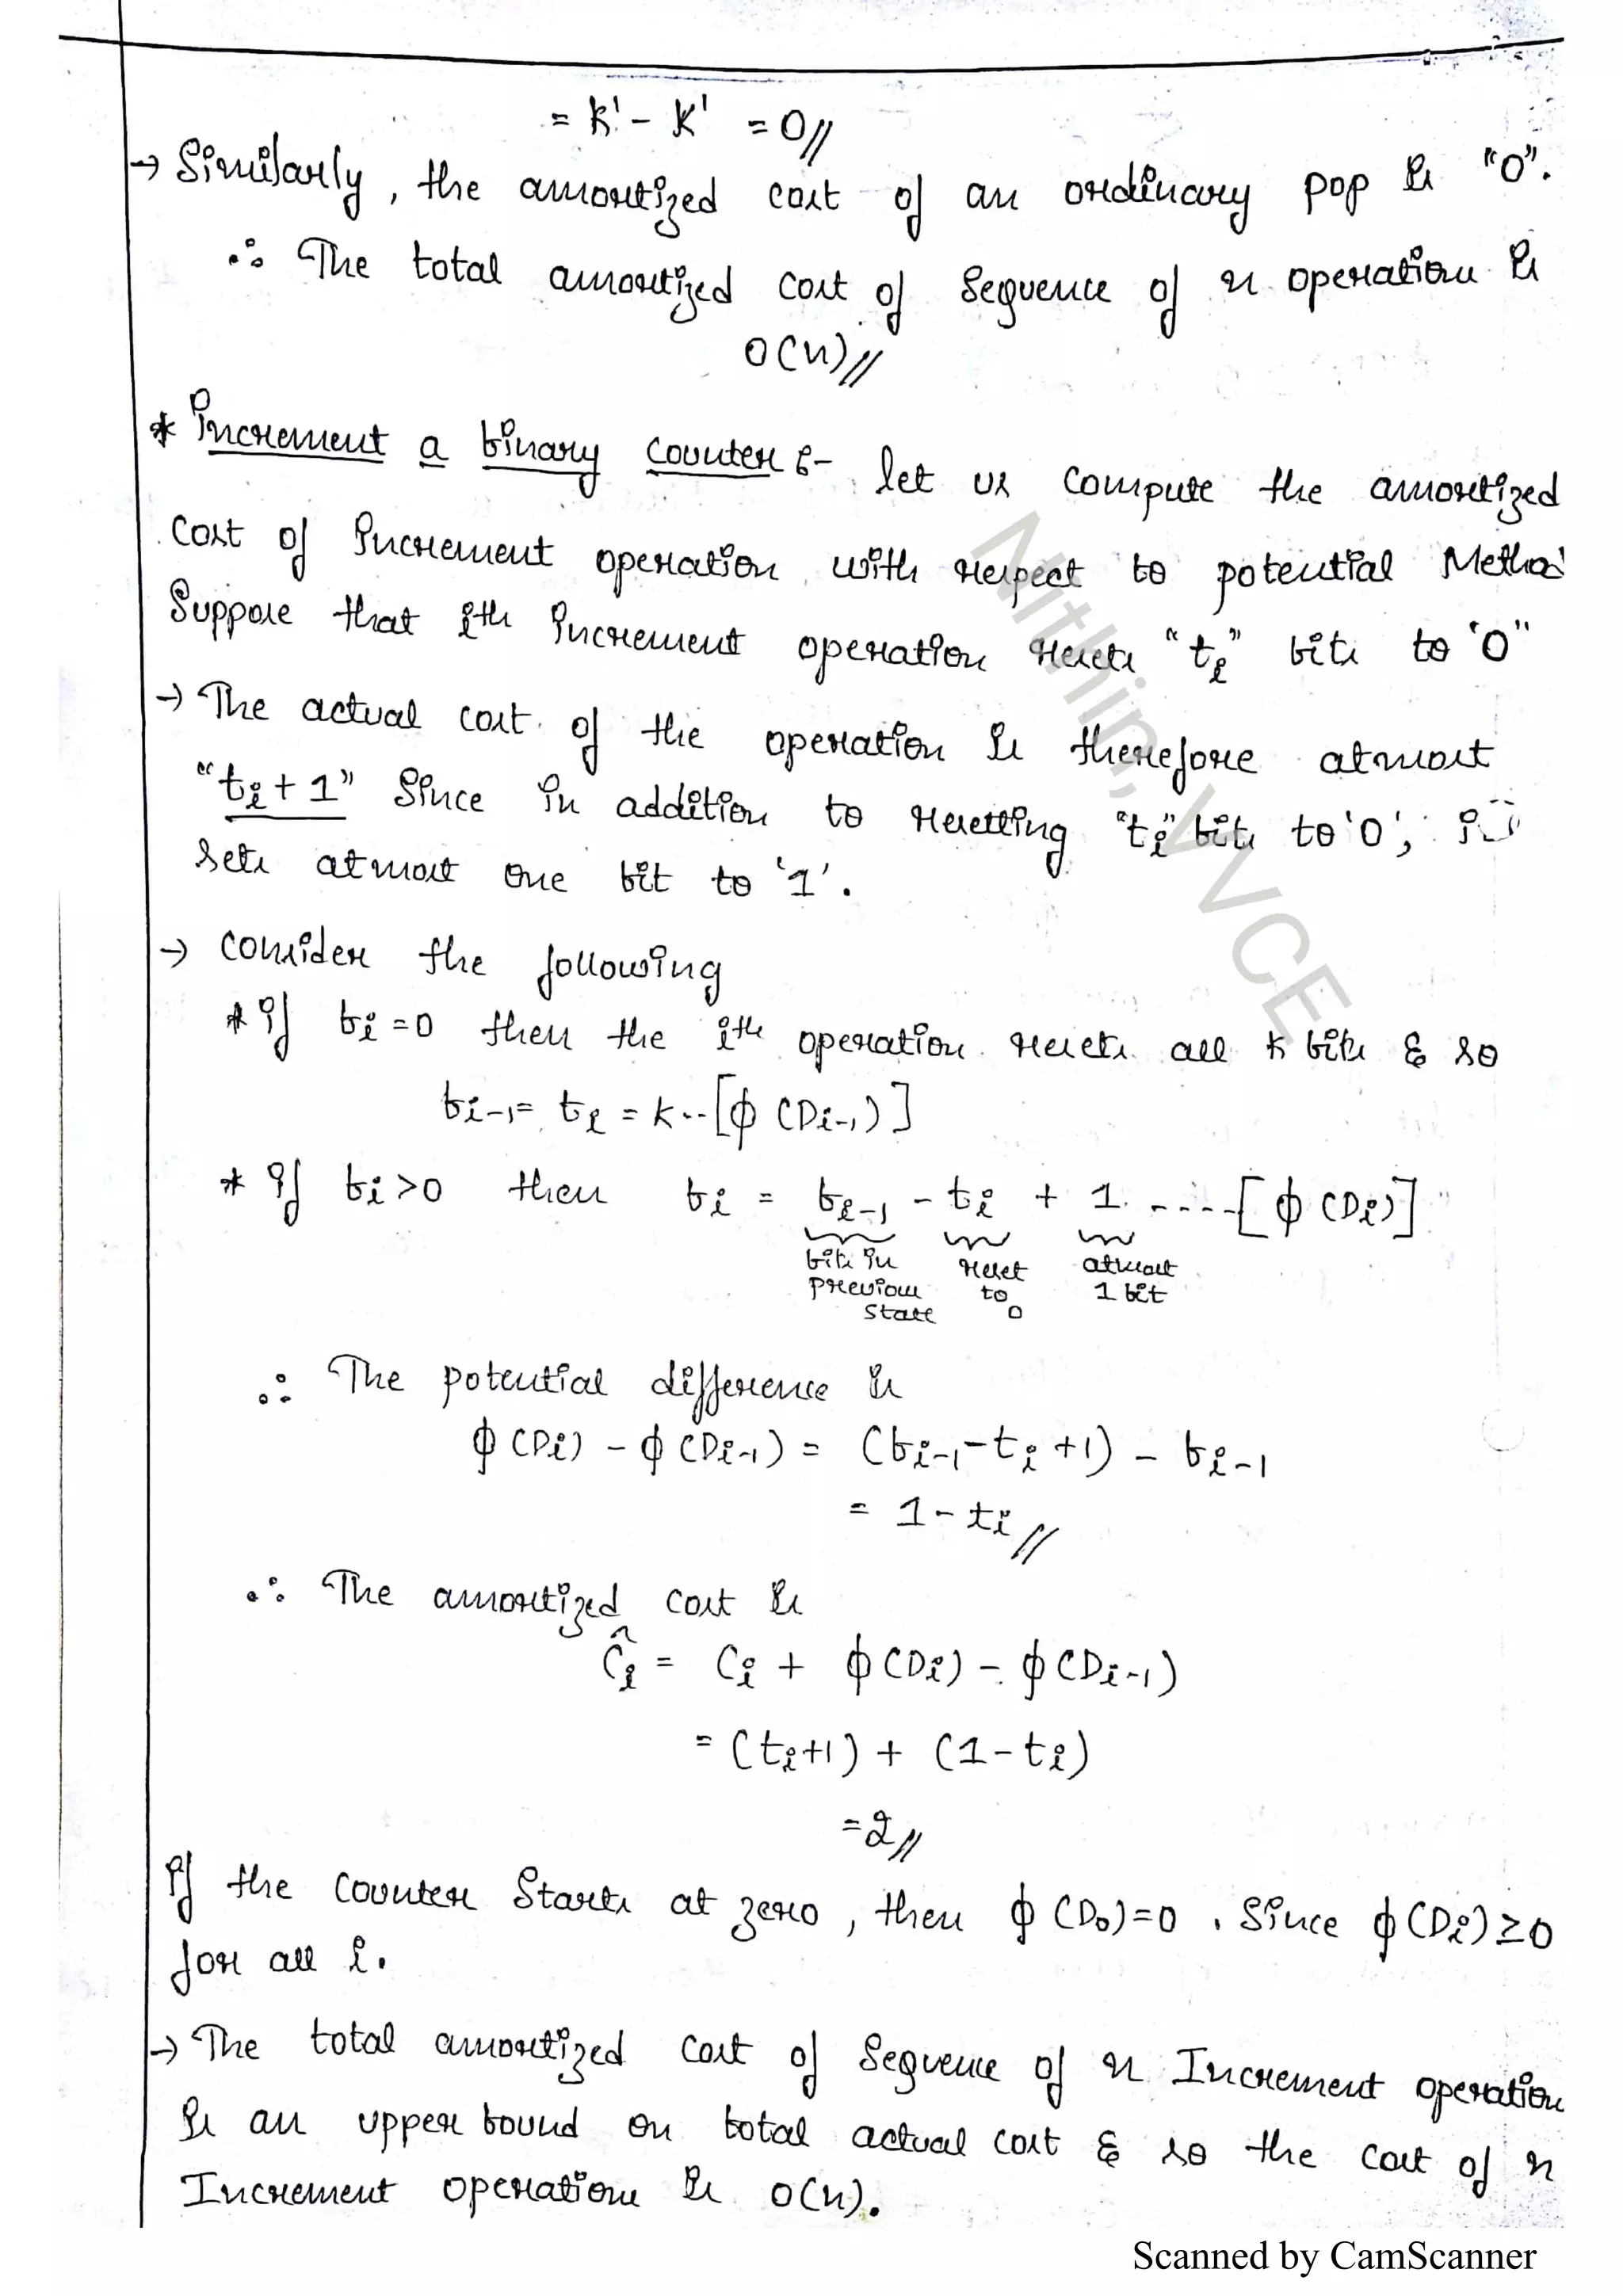 = k' - k' = 0//
→ Similarly, the amortized cost of an ordinary pop is "0".
∴ The total amortized cost of sequence of n operations is
O(n)//
* Increment a binary counter :- let us compute the amortized
cost of Increment operation with respect to potential Method
Suppose that ith Increment operation resets "ti" bits to '0"
→ The actual cost of the operation is therefore atmost
"ti + 1" Since in addition to resetting "ti" bits to '0',
sets atmost one bit to '1'.
→ Consider the following
* if bi = 0 then the ith operation resets all k bits & so
bi-1 = ti = k --[ϕ (Di-1)]
* if bi > 0 then bi = bi-1 - ti + 1 -----[ϕ (Di)]
bits in reset atmost
previous to 1 bit
state 0
∴ The potential difference is
ϕ (Di) - ϕ (Di-1) = (bi-1 - ti + 1) - bi-1
= 1 - ti //
∴ The amortized cost is
Ĉi = Ci + ϕ (Di) - ϕ (Di-1)
= (ti+1) + (1 - ti)
= 2//
If the counter Starts at zero, then ϕ (D0)=0 . Since ϕ (Di) ≥ 0
for all i.
→ The total amortized cost of sequence of n Increment operation
is an upper bound on total actual cost & so the cost of n
Increment operations is O(n).
Nithin, VVCE
Scanned by CamScanner